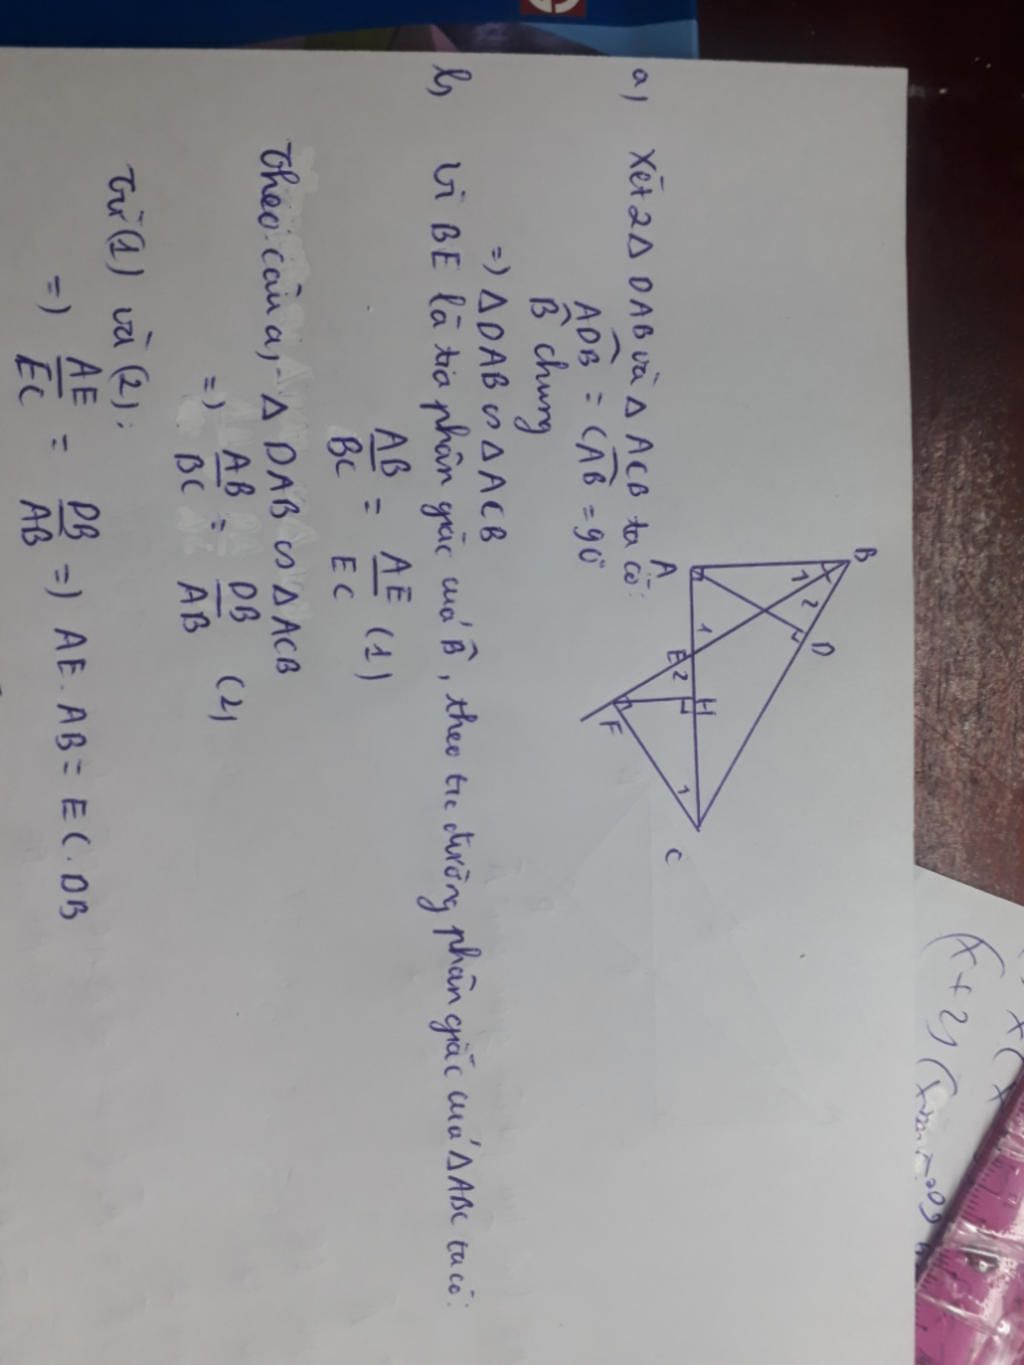 B
1 2 D
A 1 E 2 H 1 C
F
a, Xét 2Δ DAB và Δ ACB ta có:
ADB̂ = CAB̂ = 90°
B̂ chung
=) Δ DAB ∽ Δ ACB
b, Vì BE là tia phân giác của B̂, theo t.c đường phân giác của ΔABC ta có:
AB/BC = AE/EC (1)
Theo câu a, Δ DAB ∽ Δ ACB
=) AB/BC = DB/AB (2)
Từ (1) và (2):
=) AE/EC = DB/AB =) AE. AB = EC. DB
(x+2)(
x(x